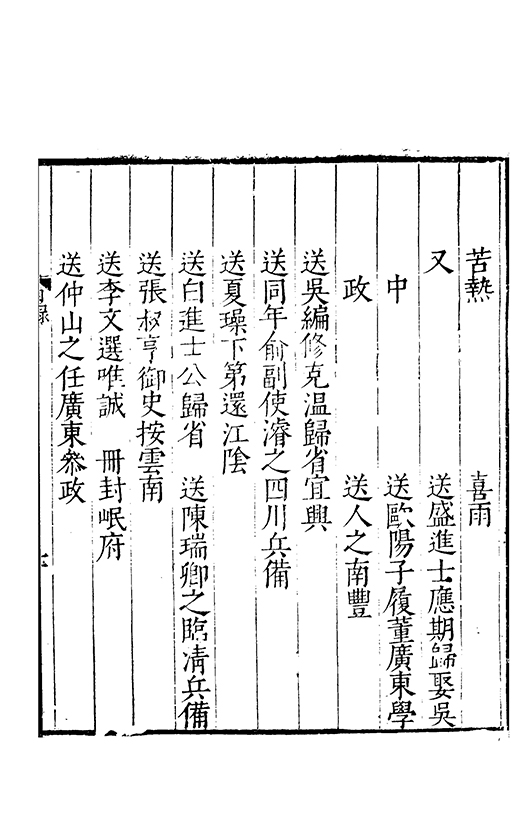 苦熱　喜雨
又　送盛進士應期歸娶吳
中　送歐陽子履董廣東學
政　送人之南豐
送吳編修克温歸省宜興
送同年俞副使濬之四川兵備
送夏璪下第還江陰
送白進士公歸省　送陳瑞卿之臨凊兵備
送張叔亨御史按雲南
送李文選唯誠　冊封岷府
送仲山之任廣東叅政
目録